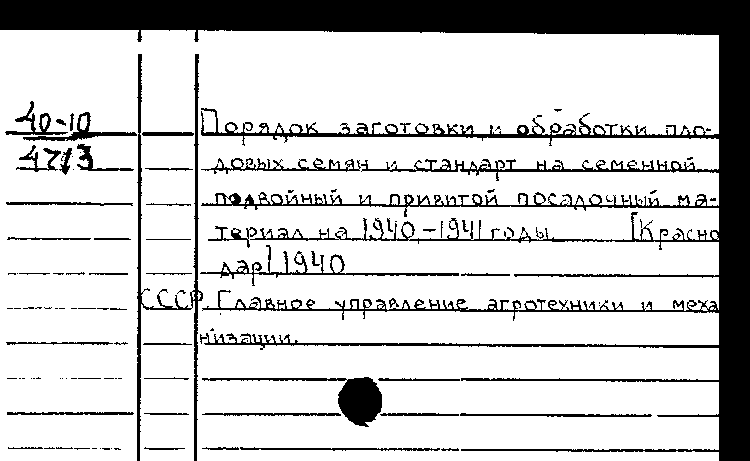 40-10
4213
Порядок заготовки и обработки пло-
довых семян и стандарт на семенной
подвойный и привитой посадочный ма-
териал на 1940-1941 годы [Красно
дар] 1940
СССР Главное управление агротехники и меха
низации.